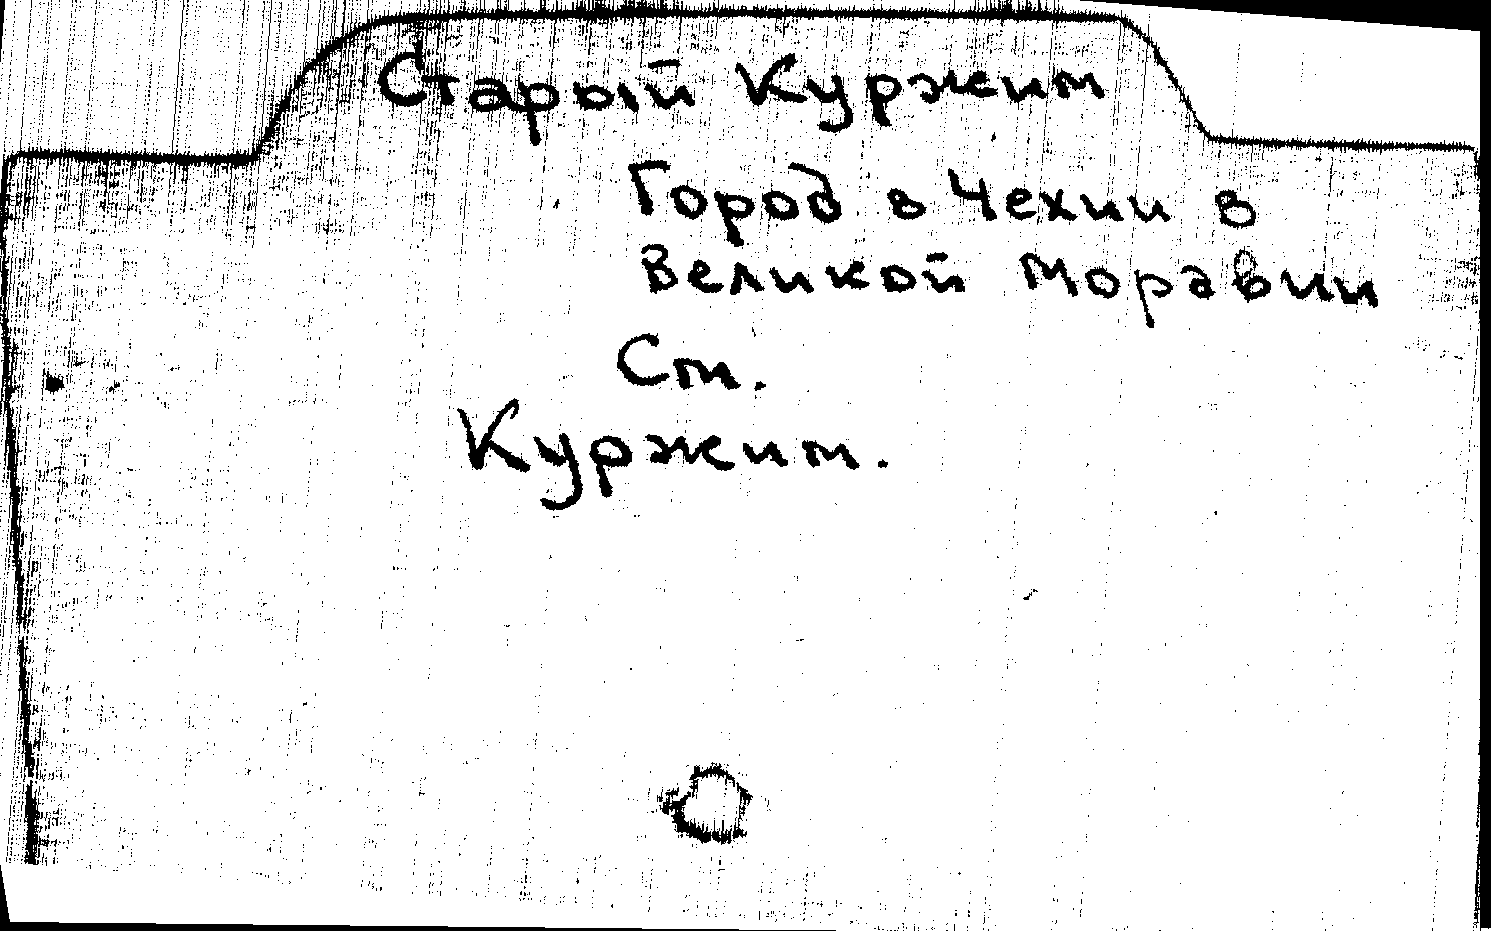 Старый Куржим
Город в Чехии в
Великой Моравии
См.
Куржим.